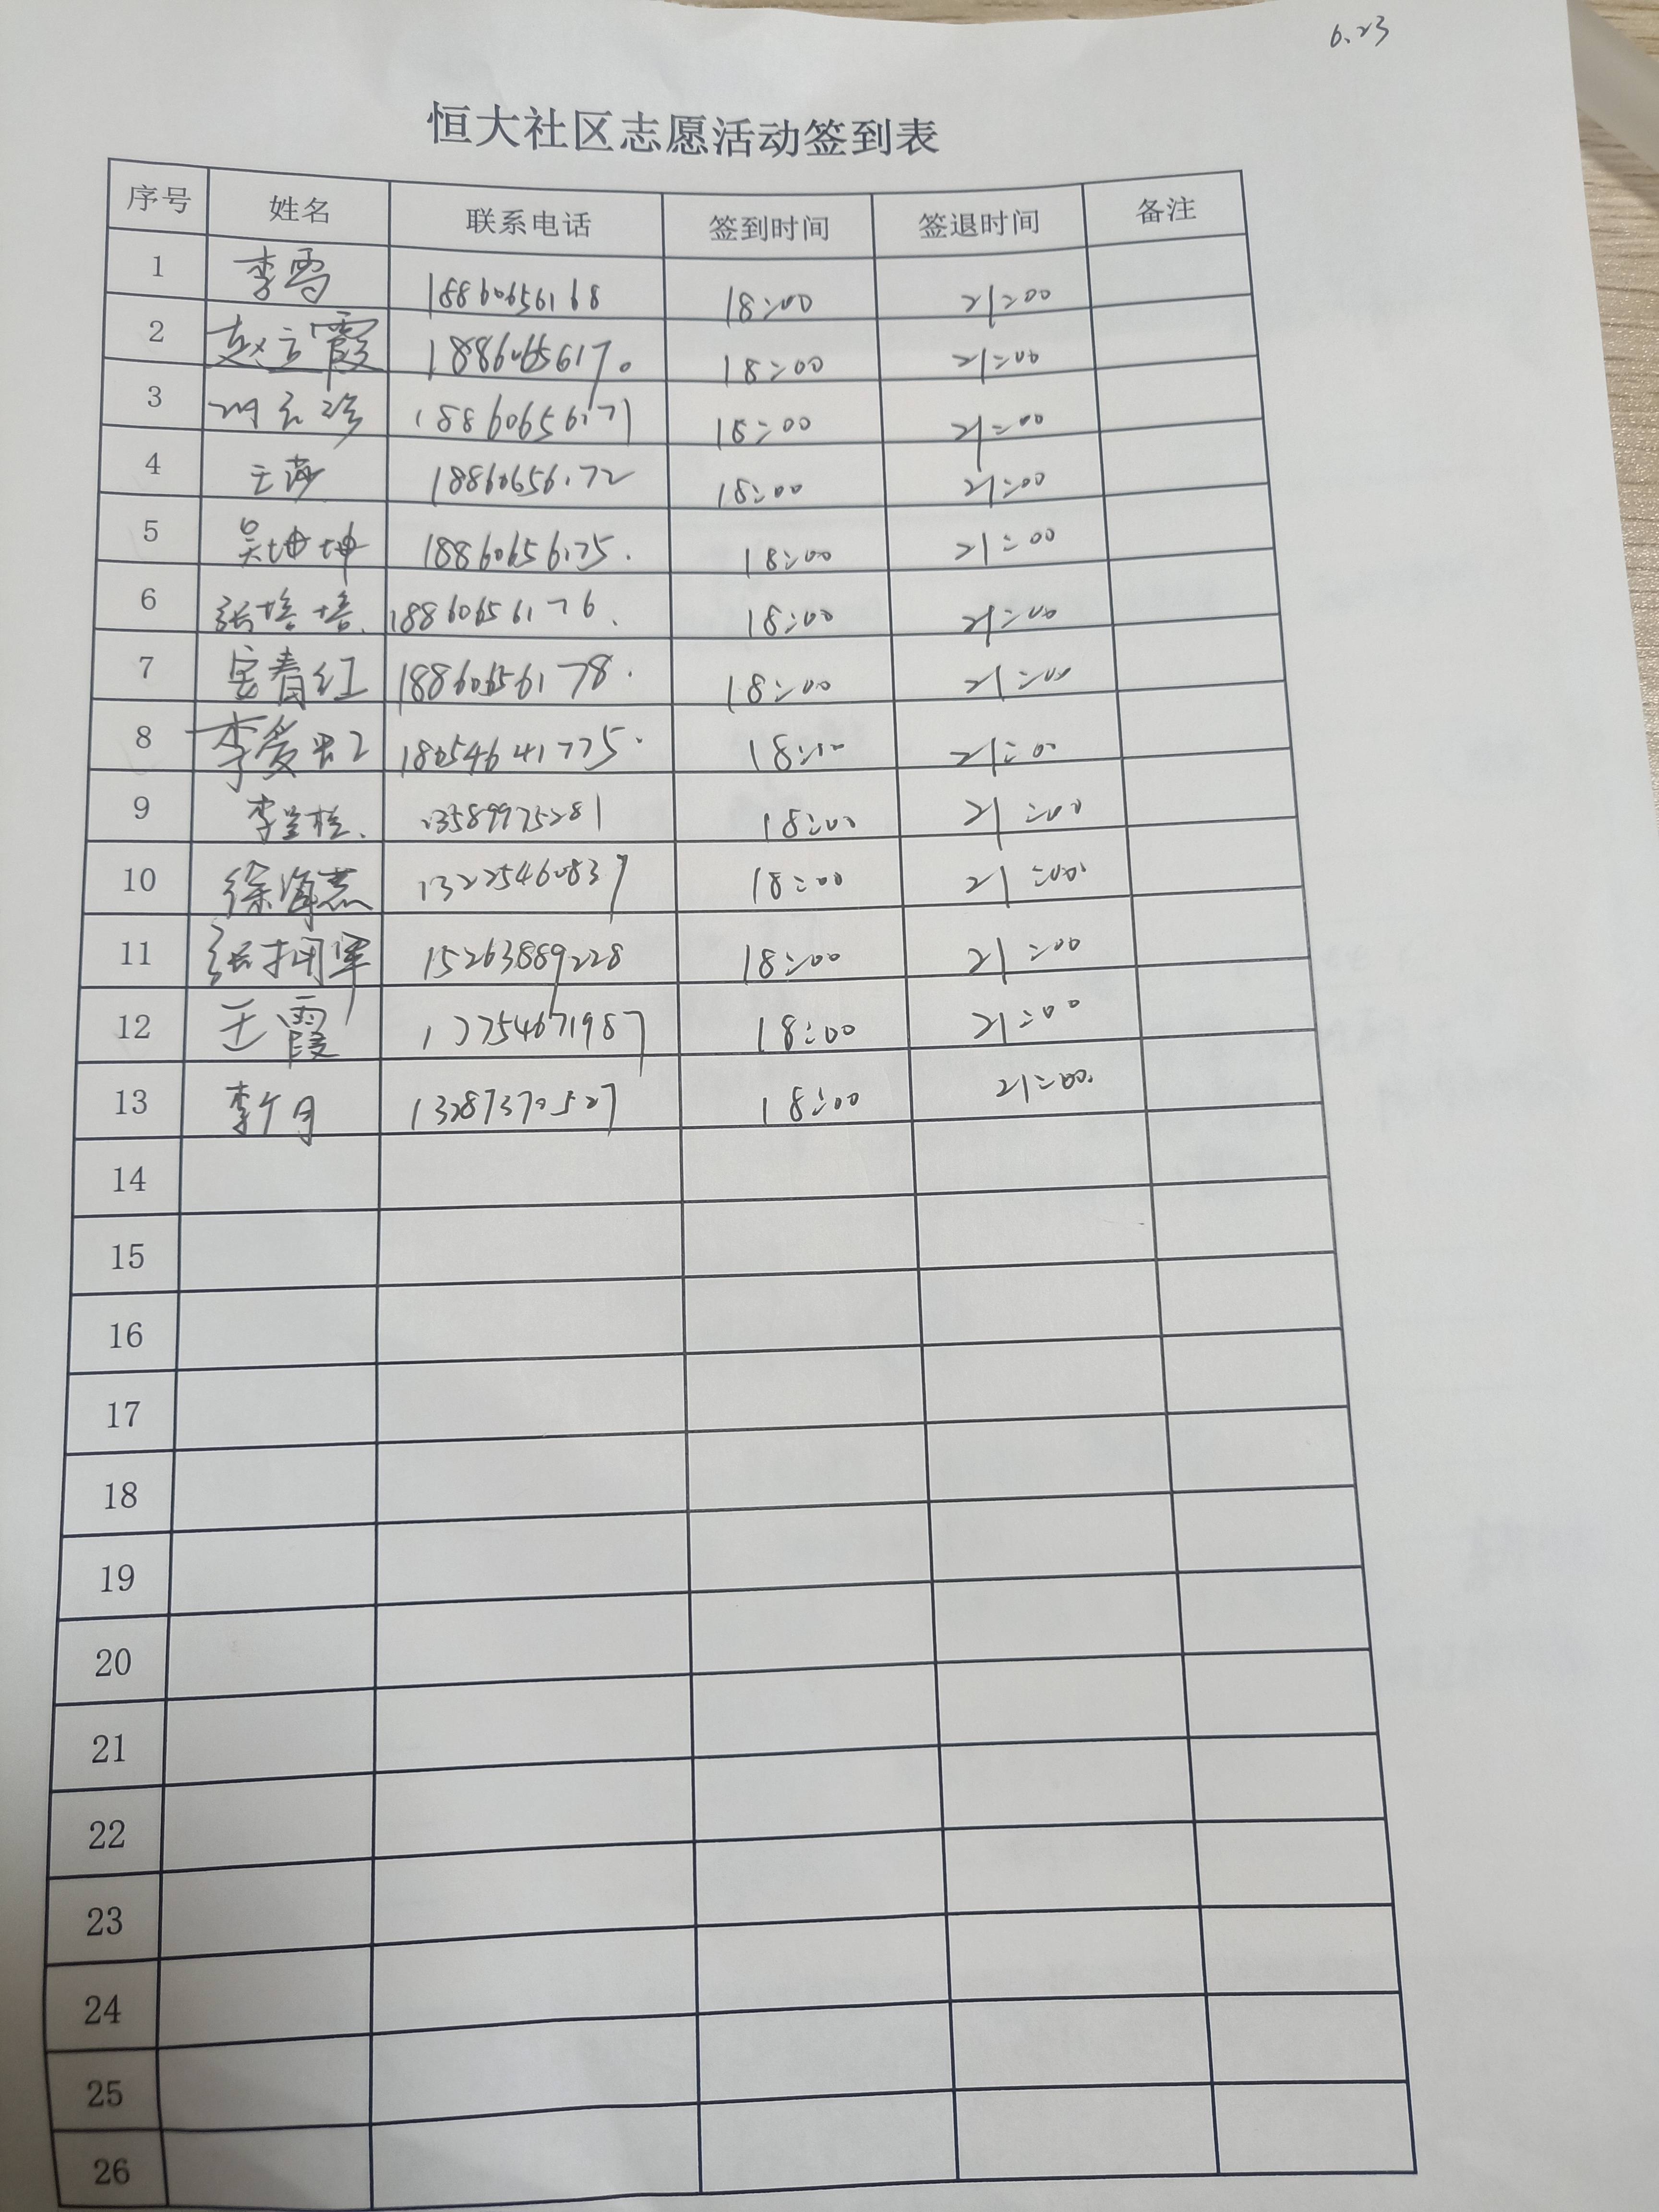 6.23
恒大社区志愿活动签到表
序号 姓名 联系电话 签到时间 签退时间 备注
1 李雪 18860656168 18:00 21:00
2 赵立霞 18860656170 18:00 21:00
3 18860656171 18:00 21:00
4 王莎 18860656172 18:00 21:00
5 吴坤坤 18860656175. 18:00 21:00
6 张培培. 18860656176. 18:00 21:00
7 安春红 18860656178. 18:00 21:00
8 李爱 18054641775. 18:00 21:00
9 李 13589975281 18:00 21:00
10 徐海燕 13225460837 18:00 21:00.
11 张 军 15263889228 18:00 21:00
12 王霞 17754671987 18:00 21:00
13 李个月 13287370527 18:00 21:00.
14
15
16
17
18
19
20
21
22
23
24
25
26